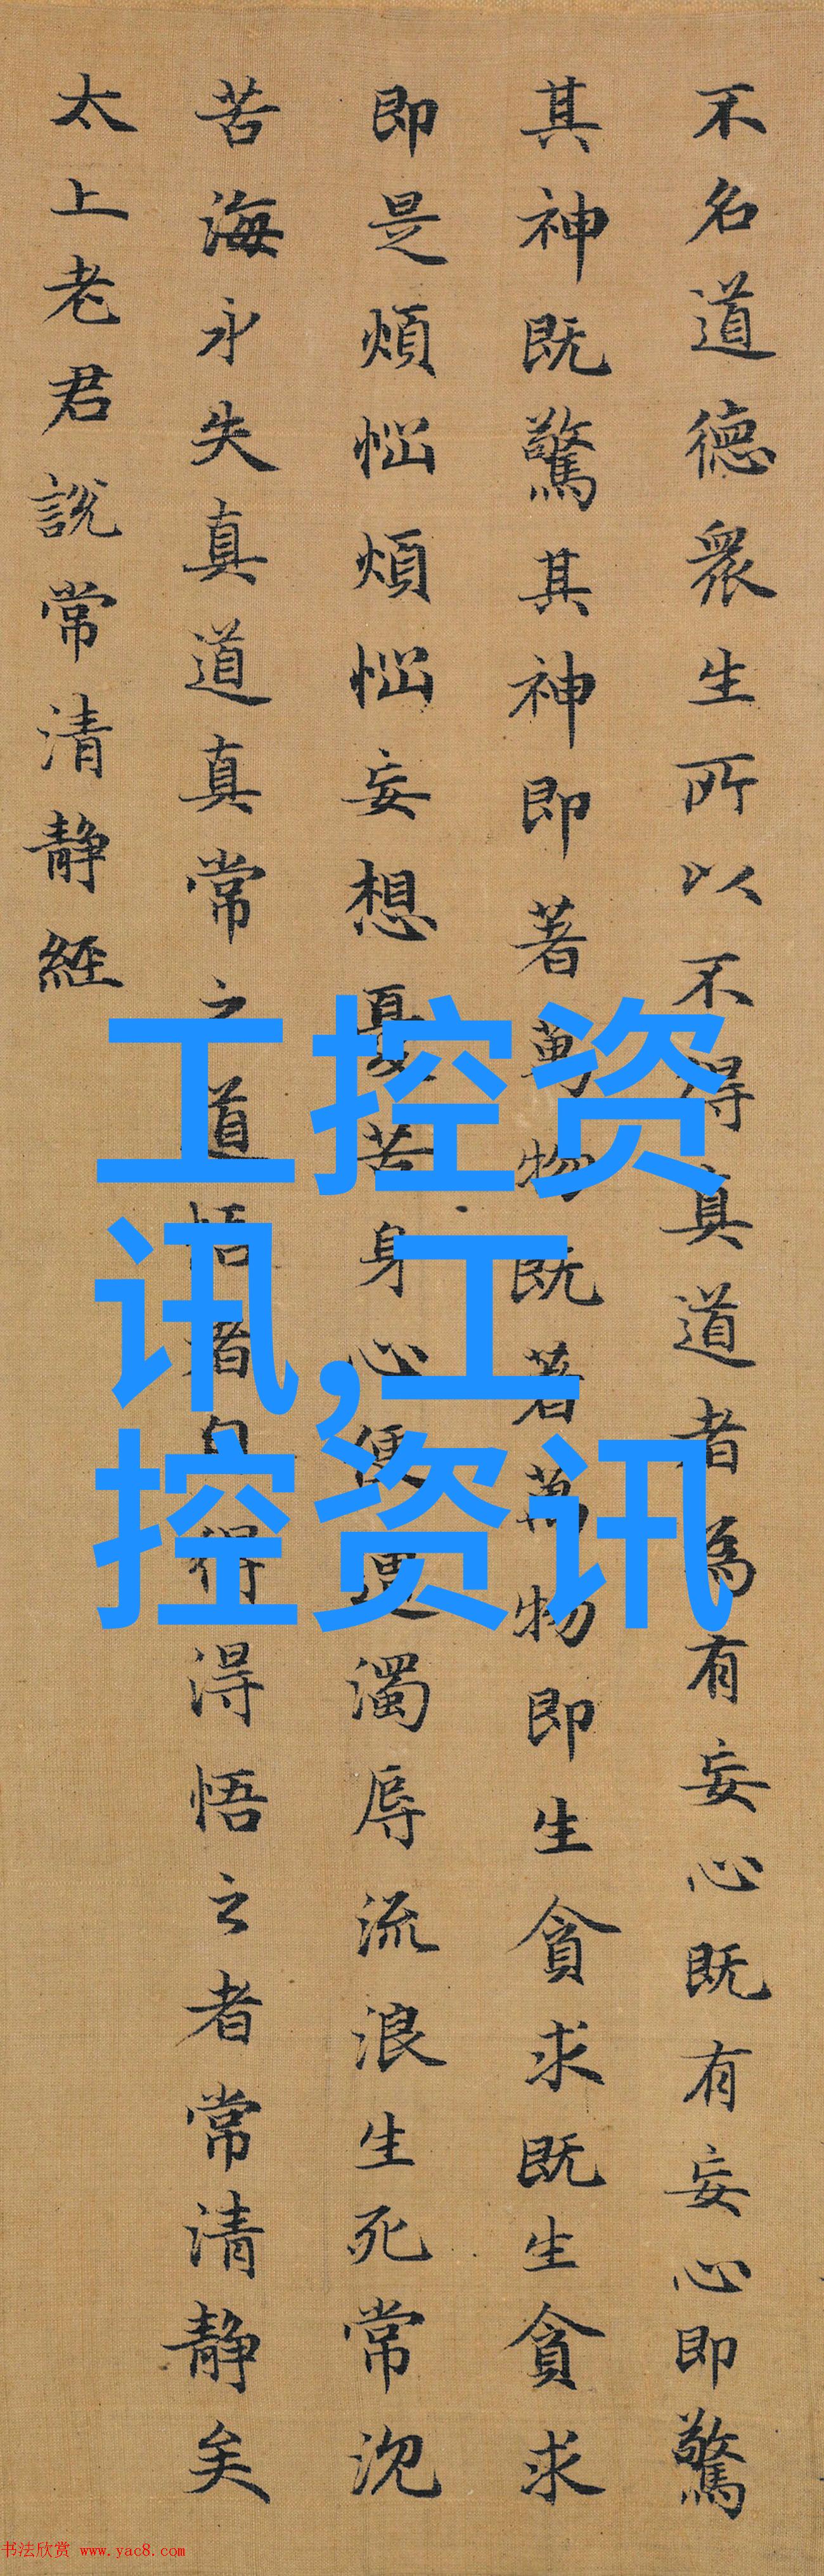 不名道德衆生所以不得真道者為有妄心既有妄心即驚
其神既驚其神即著萬物既著萬物即生貪求既生貪求
即是煩惱煩惱妄想憂苦身心便遭濁辱流浪生死常沉
苦海永失真道真常之道悟者自得得悟之者常清靜矣
太上老君說常清靜經
工控资
讯,工
控资讯
书法欣赏 www.yac8.com